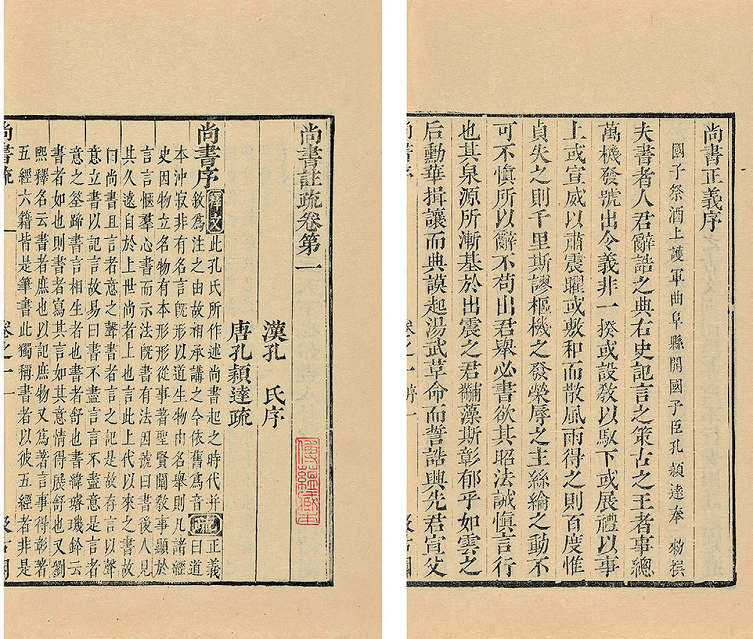 尚書正義序
國子祭酒上護軍曲阜縣開國子臣孔穎達奉 勑撰
夫書者人君辭誥之典右史記言之策古之王者事總
萬機發號出令義非一揆或設敎以馭下或展禮以事
上或宣威以肅震曜或敷和而散風雨得之則百度惟
貞失之則千里斯謬樞機之發榮辱之主絲綸之動不
可不愼所以辭不苟出君舉必書欲其昭法誡愼言行
也其泉源所漸基於出震之君黼藻斯彰郁乎如雲之
后勳華揖讓而典謨起湯武革命而誓誥興先君宣父
尚書註疏卷第一
漢孔 氏序
唐孔穎達疏
尚書序
釋文此孔氏所作述尚書起之時代并
敘爲注之由故相承講之今依舊爲音
疏正義
曰道
本沖寂非有名言旣形以道生物由名舉則凡諸經
史因物立名物有本形形從事著聖賢闡敎事顯於
言言愜羣心書而示法旣書有法因號曰書後人見
其久遠自於上世尚者上也言此上代以來之書故
曰尚書且言者意之聲書者言之記是故存言以聲
意立書以記言故易曰書不盡言言不盡意是言者
意之筌蹄書言相生者也書者舒也書緯璿璣鈐云
書者如也則書者寫其言如其意情得展舒也又劉
熙釋名云書者庶也以記庶物又爲著言事得彰著
五經六籍皆是筆書此獨稱書者以彼五經者非是
尚書疏